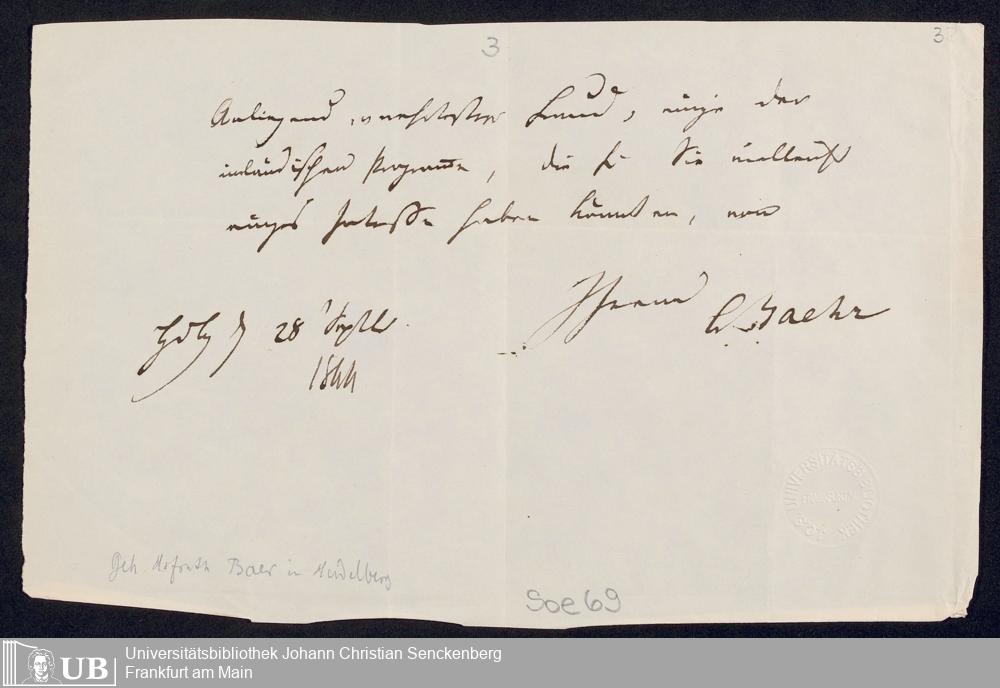 3
3
Anliegend, verehrtester Freund, einige der
inländischen Programme, die für Sie vielleicht
einiges Interesse haben könnten, von
Ihrem
C. Baehr
Hdlbg d 28 Septbr.
1844
UNIVERSITÄTSBIBLIOTHEK
FRANKFURT/M
Geh. Hofrath Baer in Heidelberg
Soe 69
UB
Universitätsbibliothek Johann Christian Senckenberg
Frankfurt am Main